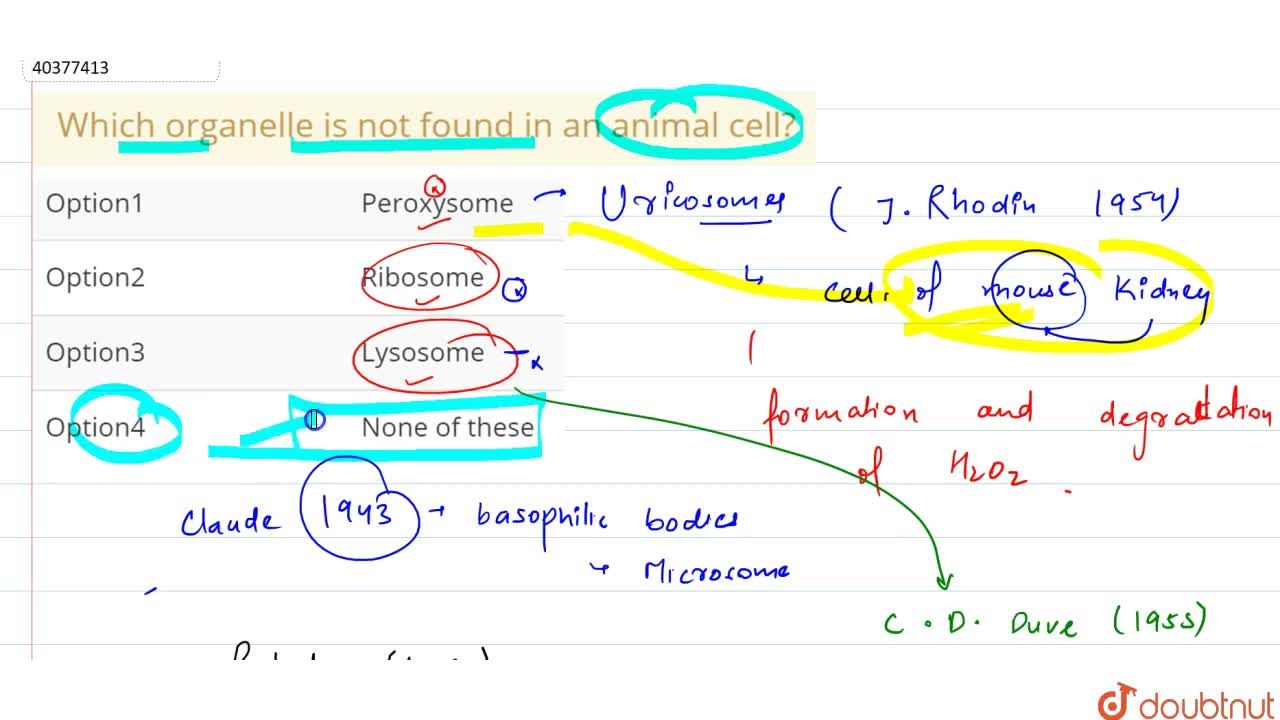 40377413
Which organelle is not found in an animal cell?
Option1 Peroxysome → Uricosomes ( J. Rhodin 1954)
↳ cell. of mouse Kidney
Option2 Ribosome
Option3 Lysosome
formation and degradtation
of H2O2
Option4 None of these
Claude 1943 → basophilic bodies
↳ Microsome
C. D. Duve (1955)
doubtnut